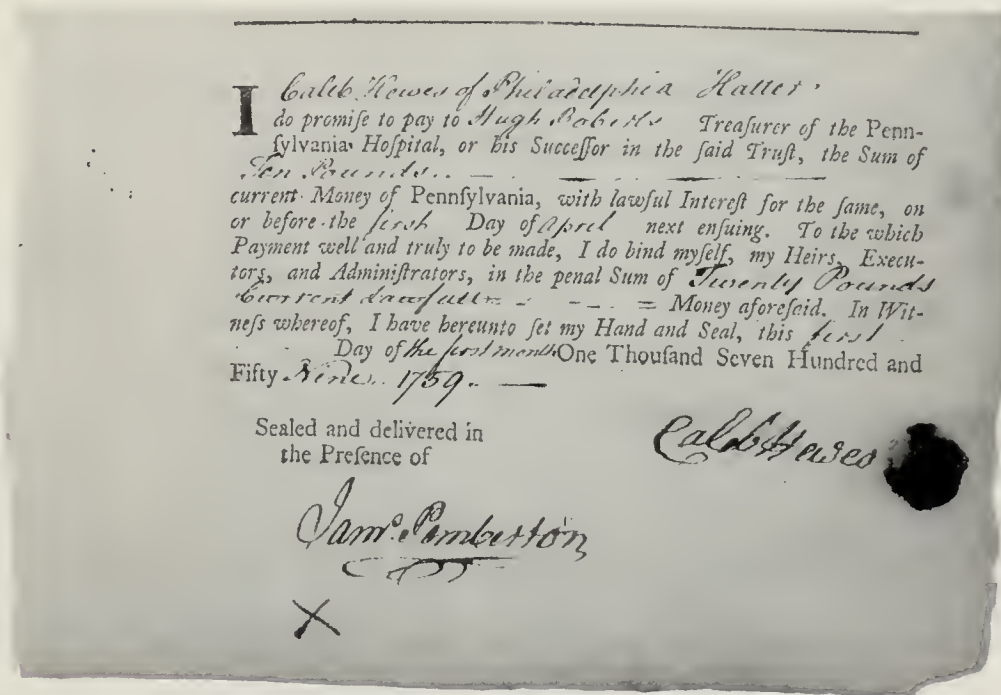 I Caleb Hewes of Philadelphia Hatter
do promiſe to pay to Hugh Roberts Treaſurer of the Penn-
ſylvania Hoſpital, or his Succeſſor in the ſaid Truſt, the Sum of
Ten Pounds
current Money of Pennſylvania, with lawful Intereſt for the ſame, on
or before the first Day of April next enſuing. To the which
Payment well and truly to be made, I do bind myſelf, my Heirs, Execu-
tors, and Adminiſtrators, in the penal Sum of Twenty Pounds
Current = Money aforeſaid. In Wit-
neſs whereof, I have hereunto ſet my Hand and Seal, this first
Day of the first month One Thouſand Seven Hundred and
Fifty Nine 1759. —
Sealed and delivered in
the Preſence of
Caleb Hewes
Jams. Pemberton
X